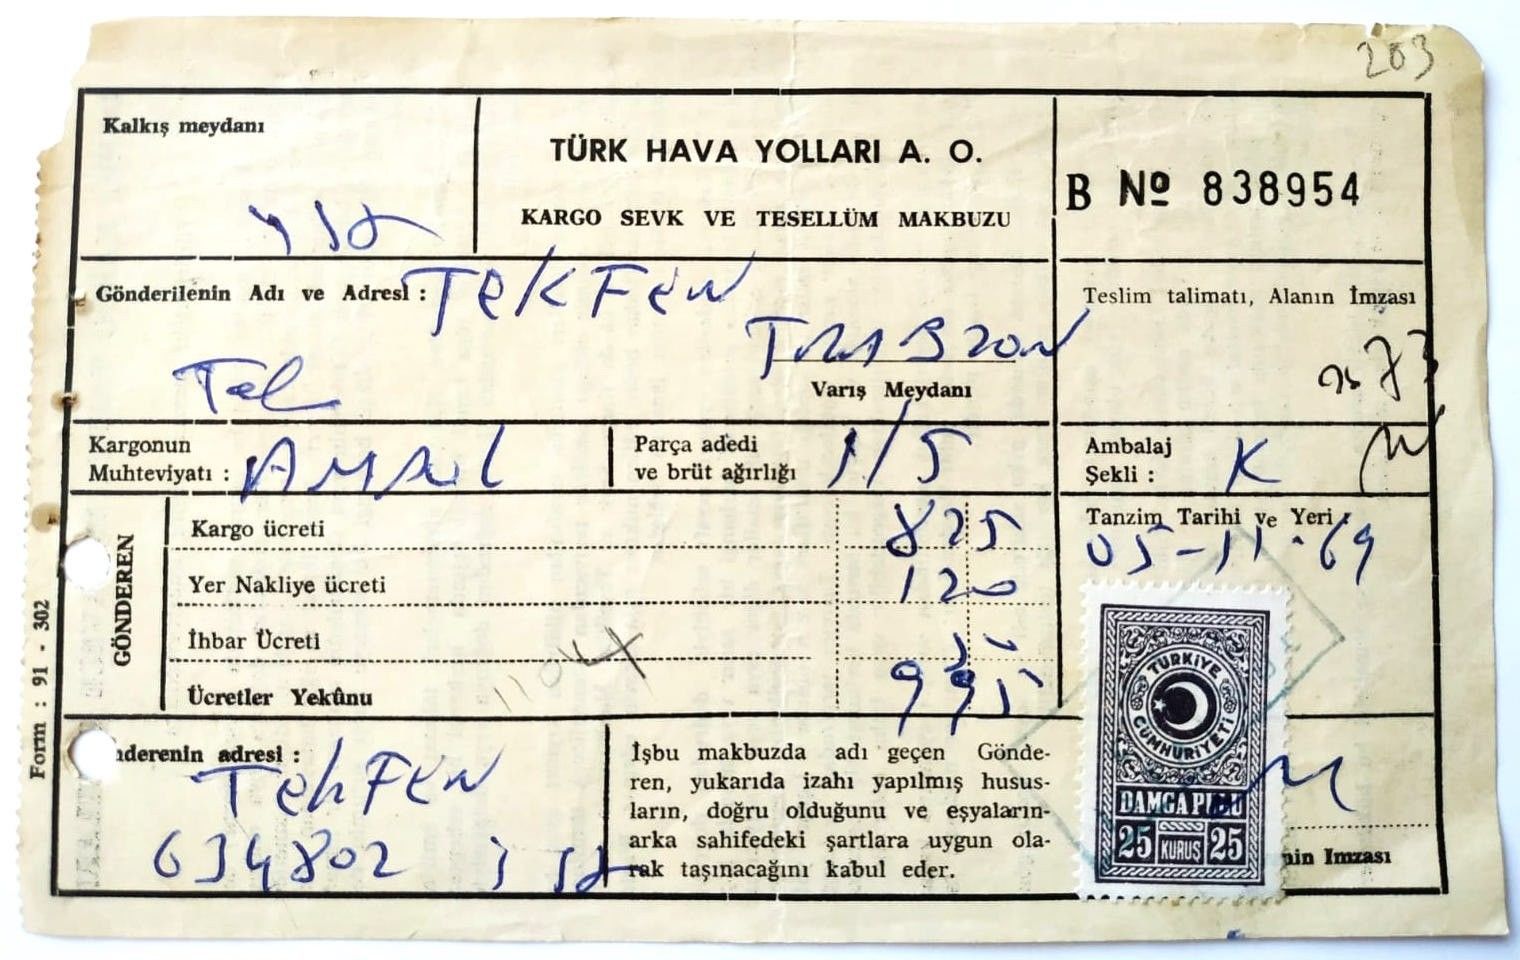 203
Kalkış meydanı
TÜRK HAVA YOLLARI A. O.
KARGO SEVK VE TESELLÜM MAKBUZU
B Nº 838954
Gönderilenin Adı ve Adresi : TEKFEN
TRABZON
Tel
Varış Meydanı
Teslim talimatı, Alanın İmzası
Kargonun
Muhteviyatı :
Parça adedi
ve brüt ağırlığı 1/5
Ambalaj
Şekli : K
GÖNDEREN
Kargo ücreti 825
Yer Nakliye ücreti 120
İhbar Ücreti
Ücretler Yekûnu 995
Tanzim Tarihi ve Yeri :
05-11-69
Form : 91 - 302
nderenin adresi :
TEKFEN
634802 İST
İşbu makbuzda adı geçen Gönde-
ren, yukarıda izahı yapılmış husus-
ların, doğru olduğunu ve eşyaların-
arka sahifedeki şartlara uygun ola-
rak taşınacağını kabul eder.
TÜRKİYE
CÜMHURİYETİ
DAMGA PULU
25 KURUŞ 25
nin İmzası